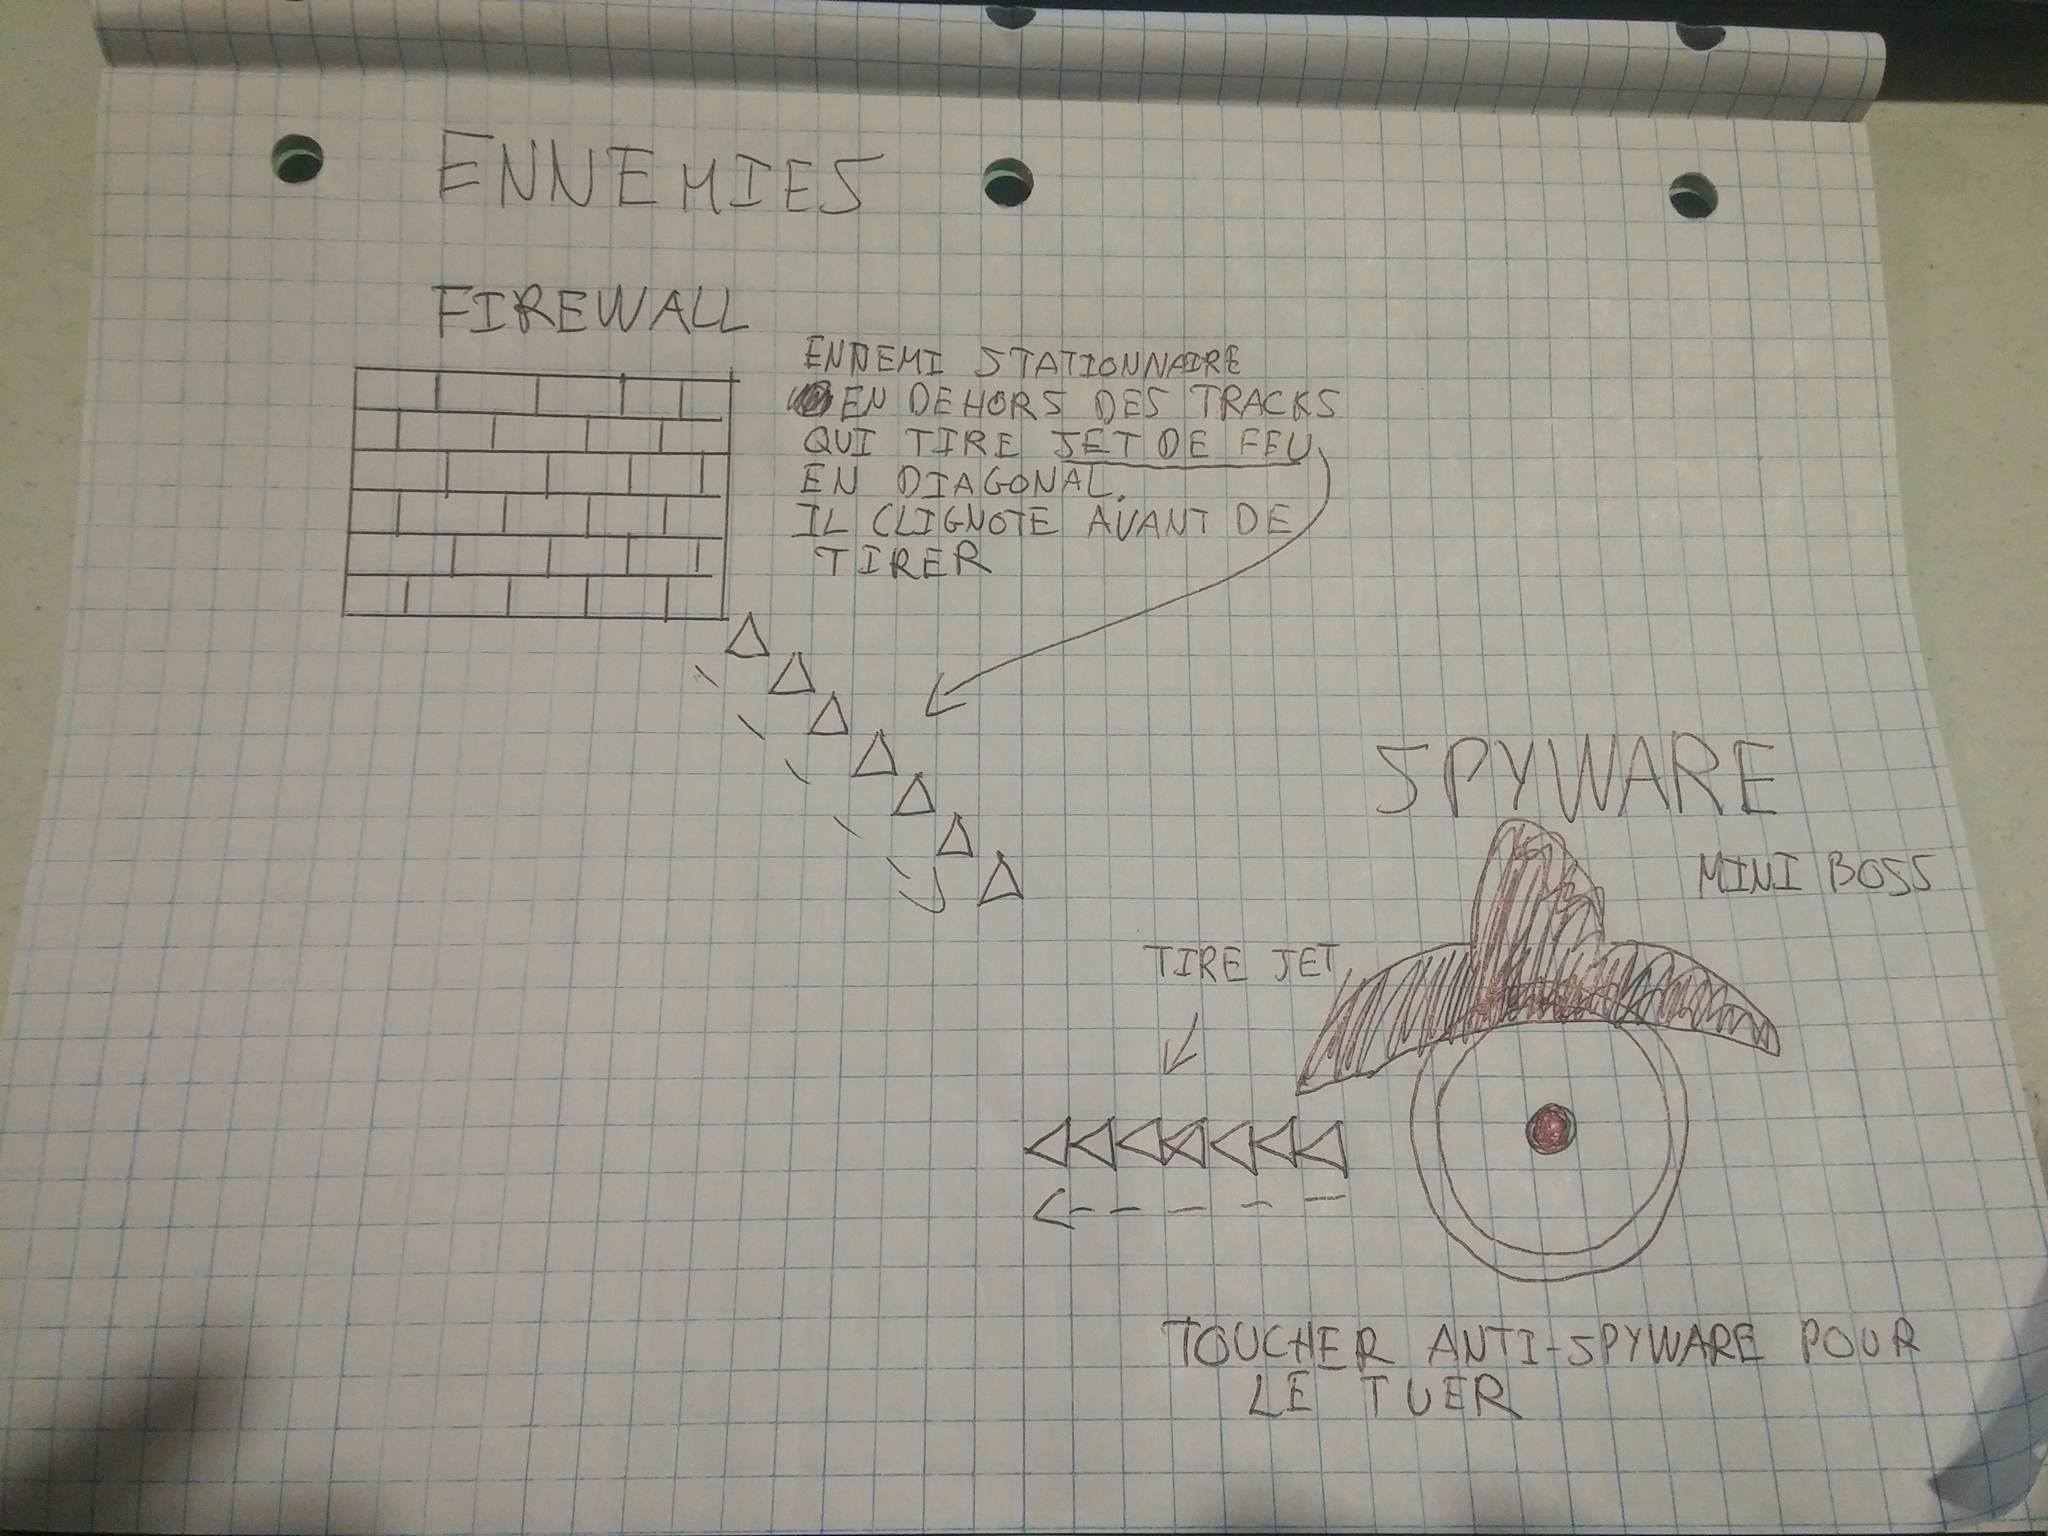 ENNEMIES
FIREWALL
ENNEMI STATIONNAIRE
EN DEHORS DES TRACKS
QUI TIRE JET DE FEU
EN DIAGONAL.
IL CLIGNOTE AVANT DE
TIRER
SPYWARE
MINI BOSS
TIRE JET
TOUCHER ANTI-SPYWARE POUR
LE TUER